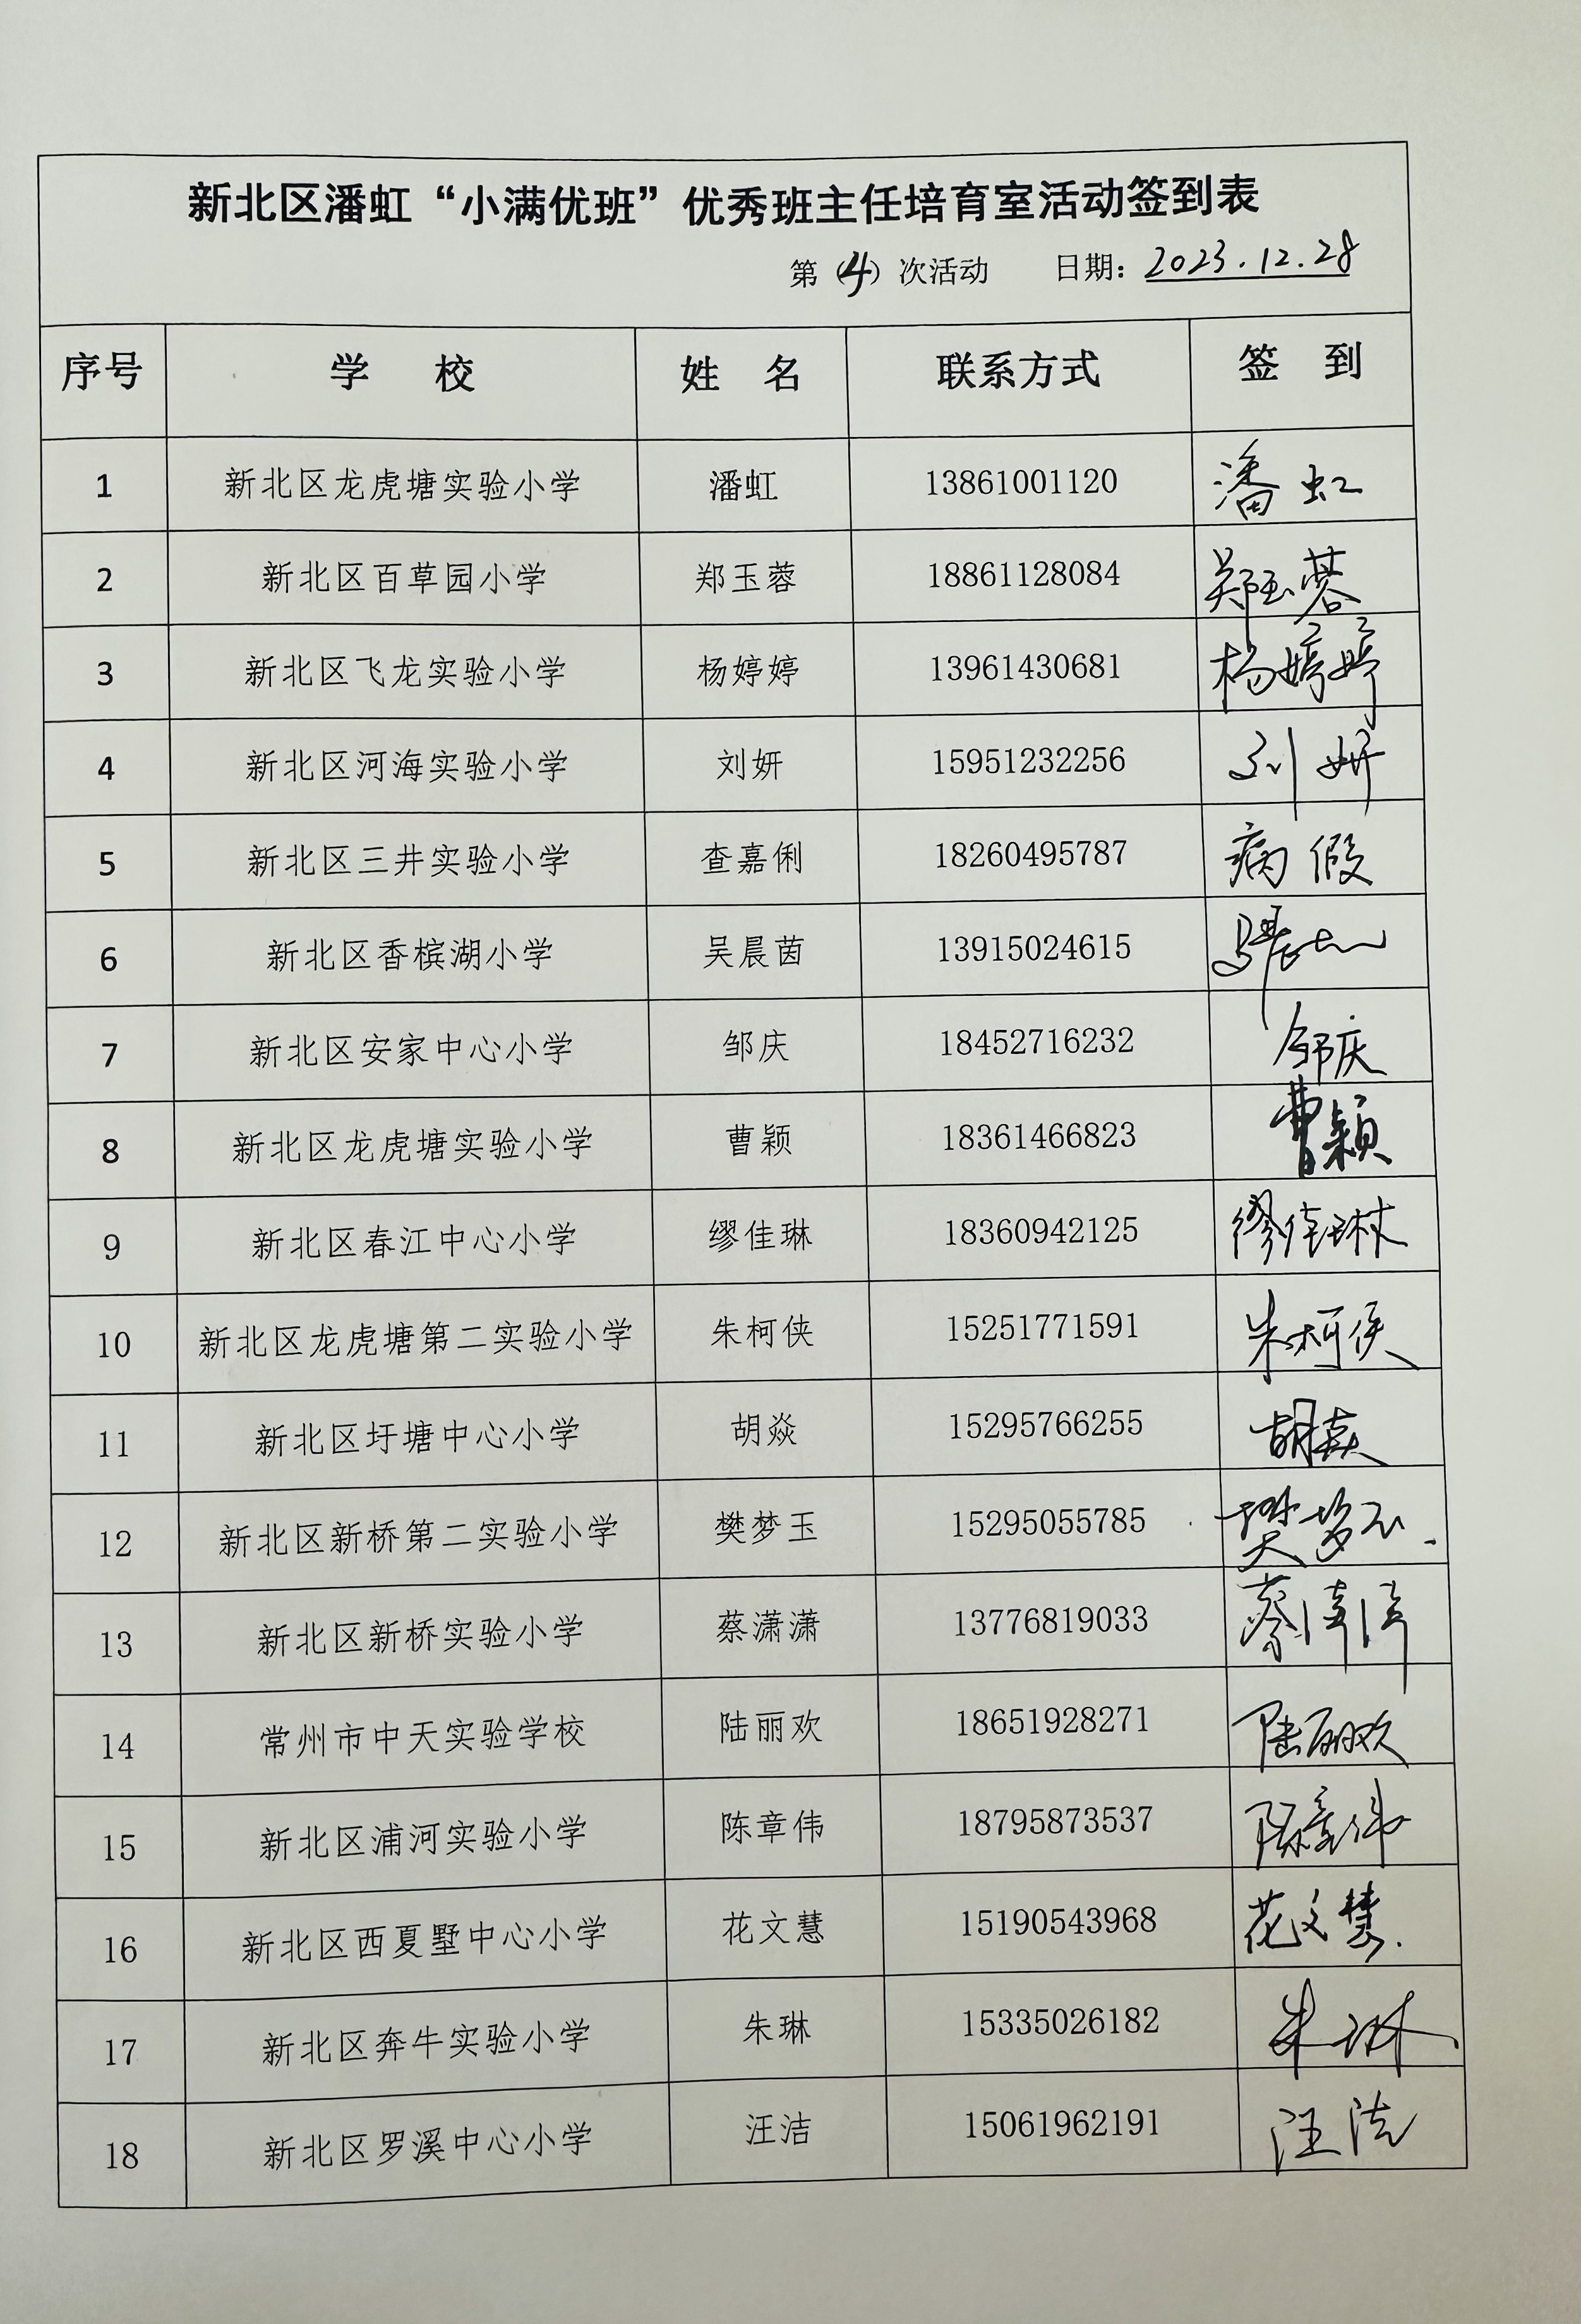 新北区潘虹“小满优班”优秀班主任培育室活动签到表
第（4）次活动 日期：2023.12.28
序号 学 校 姓 名 联系方式 签 到
1 新北区龙虎塘实验小学 潘虹 13861001120 潘虹
2 新北区百草园小学 郑玉蓉 18861128084 郑玉蓉
3 新北区飞龙实验小学 杨婷婷 13961430681 杨婷婷
4 新北区河海实验小学 刘妍 15951232256 刘妍
5 新北区三井实验小学 查嘉俐 18260495787 病假
6 新北区香槟湖小学 吴晨茵 13915024615 吴晨茵
7 新北区安家中心小学 邹庆 18452716232 邹庆
8 新北区龙虎塘实验小学 曹颖 18361466823 曹颖
9 新北区春江中心小学 缪佳琳 18360942125 缪佳琳
10 新北区龙虎塘第二实验小学 朱柯侠 15251771591 朱柯侠
11 新北区圩塘中心小学 胡焱 15295766255 胡焱
12 新北区新桥第二实验小学 樊梦玉 15295055785 樊梦玉
13 新北区新桥实验小学 蔡潇潇 13776819033 蔡潇潇
14 常州市中天实验学校 陆丽欢 18651928271 陆丽欢
15 新北区浦河实验小学 陈章伟 18795873537 陈章伟
16 新北区西夏墅中心小学 花文慧 15190543968 花文慧
17 新北区奔牛实验小学 朱琳 15335026182 朱琳
18 新北区罗溪中心小学 汪洁 15061962191 汪洁